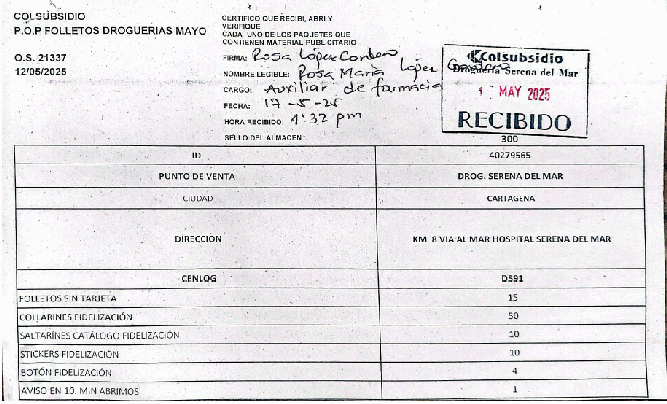 COLSUBSIDIO
P.O.P FOLLETOS DROGUERIAS MAYO
O.S. 21337
12/05/2025
CERTIFICO QUE RECIBI, ABRI Y
VERIFIQUE
CADA UNO DE LOS PAQUETES QUE
CONTIENEN MATERIAL PUBLICITARIO
FIRMA: Rosa López Cordero
NOMBRE LEGIBLE: Rosa María López
CARGO: Auxiliar de farmacia
FECHA: 17-5-25
HORA RECIBIDO: 1:32 pm
SELLO DEL ALMACEN:
Colsubsidio
Droguería Serena del Mar
MAY 2025
RECIBIDO
300
ID 40279565
PUNTO DE VENTA DROG. SERENA DEL MAR
CIUDAD CARTAGENA
DIRECCIÓN KM 8 VIA AL MAR HOSPITAL SERENA DEL MAR
CENLOG D591
FOLLETOS SIN TARJETA 15
COLLARINES FIDELIZACIÓN 50
SALTARÍNES CATÁLOGO FIDELIZACIÓN 10
STICKERS FIDELIZACIÓN 10
BOTÓN FIDELIZACIÓN 4
AVISO EN 10. MIN ABRIMOS 1